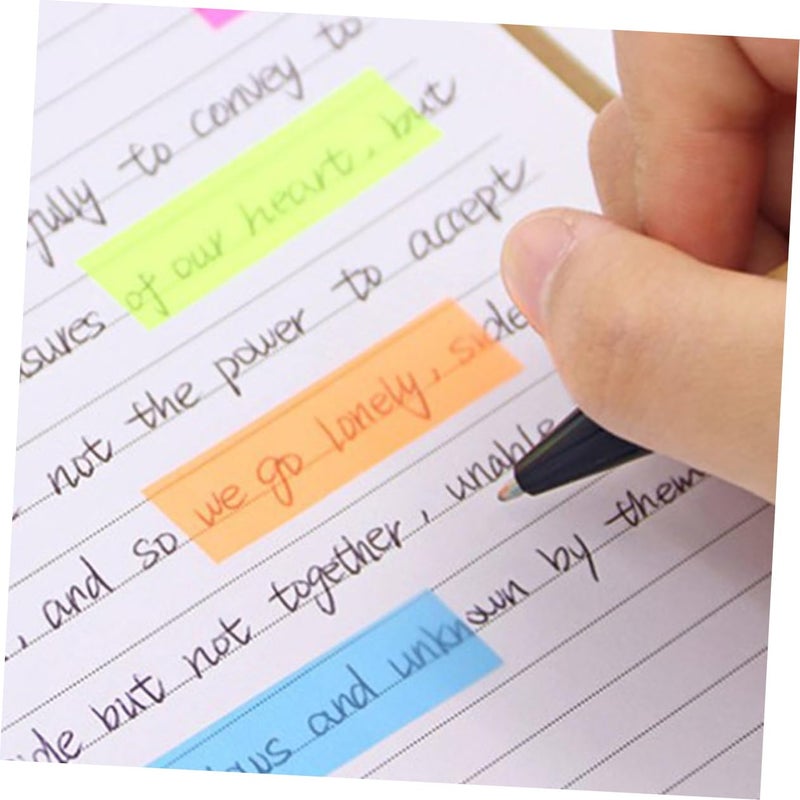 fully to convey to
sures of our heart, but
not the power to accept
, and so we go lonely, side
but not together, unable
and unknown by them